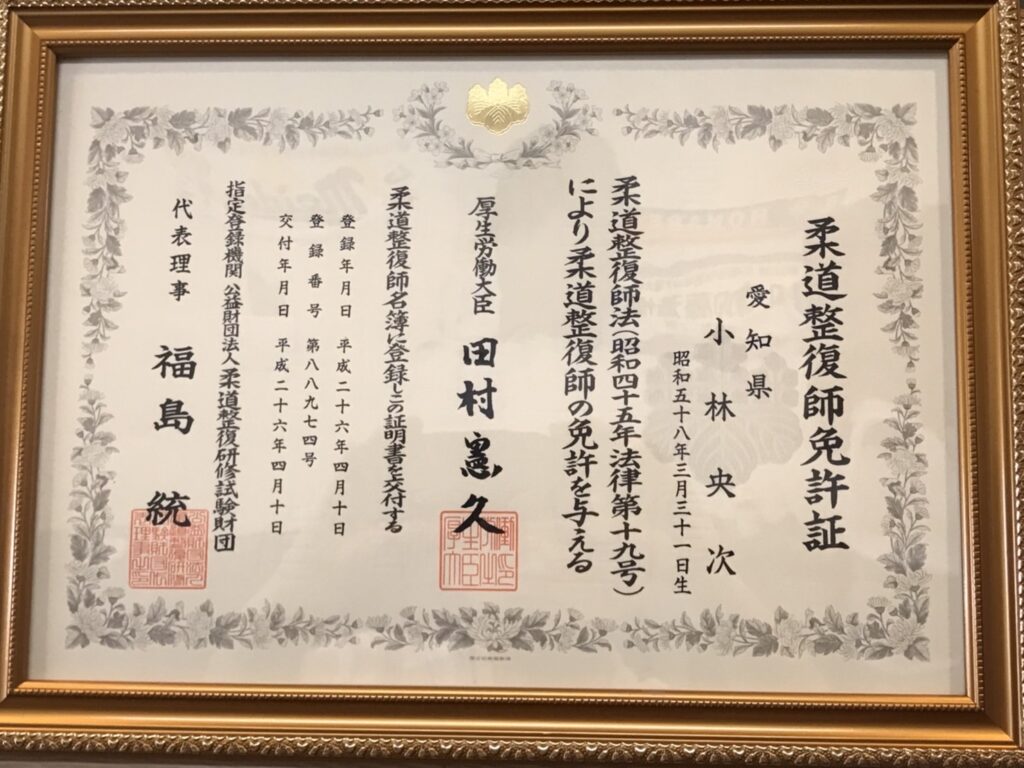 柔道整復師免許証
愛知県
小林央次
昭和五十八年三月三十一日生
柔道整復師法(昭和四十五年法律第十九号)
により柔道整復師の免許を与える
厚生労働大臣 田村憲久
柔道整復師名簿に登録しこの証明書を交付する
登録年月日 平成二十六年四月十日
登録番号 第八八九七四号
交付年月日 平成二十六年四月十日
指定登録機関 公益財団法人柔道整復研修試験財団
代表理事 福島統